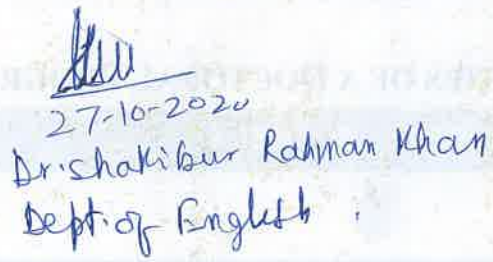 27-10-2020
Dr. Shakibur Rahman Khan
Dept. of English